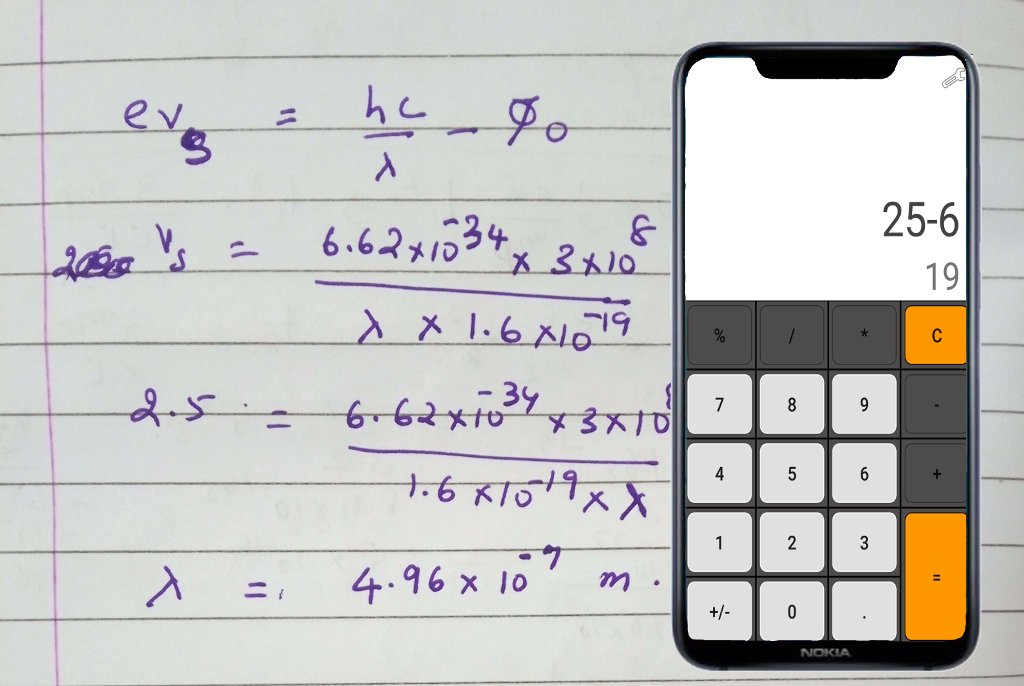 eVs = hc/λ - φ₀
Vs = 6.62×10⁻³⁴ × 3×10⁸ / λ × 1.6×10⁻¹⁹
2.5 = 6.62×10⁻³⁴ × 3×10⁸ / 1.6×10⁻¹⁹ × λ
λ = 4.96 × 10⁻⁷ m.
25-6
19
% / * C
7 8 9 -
4 5 6 +
1 2 3 =
+/- 0 .
NOKIA